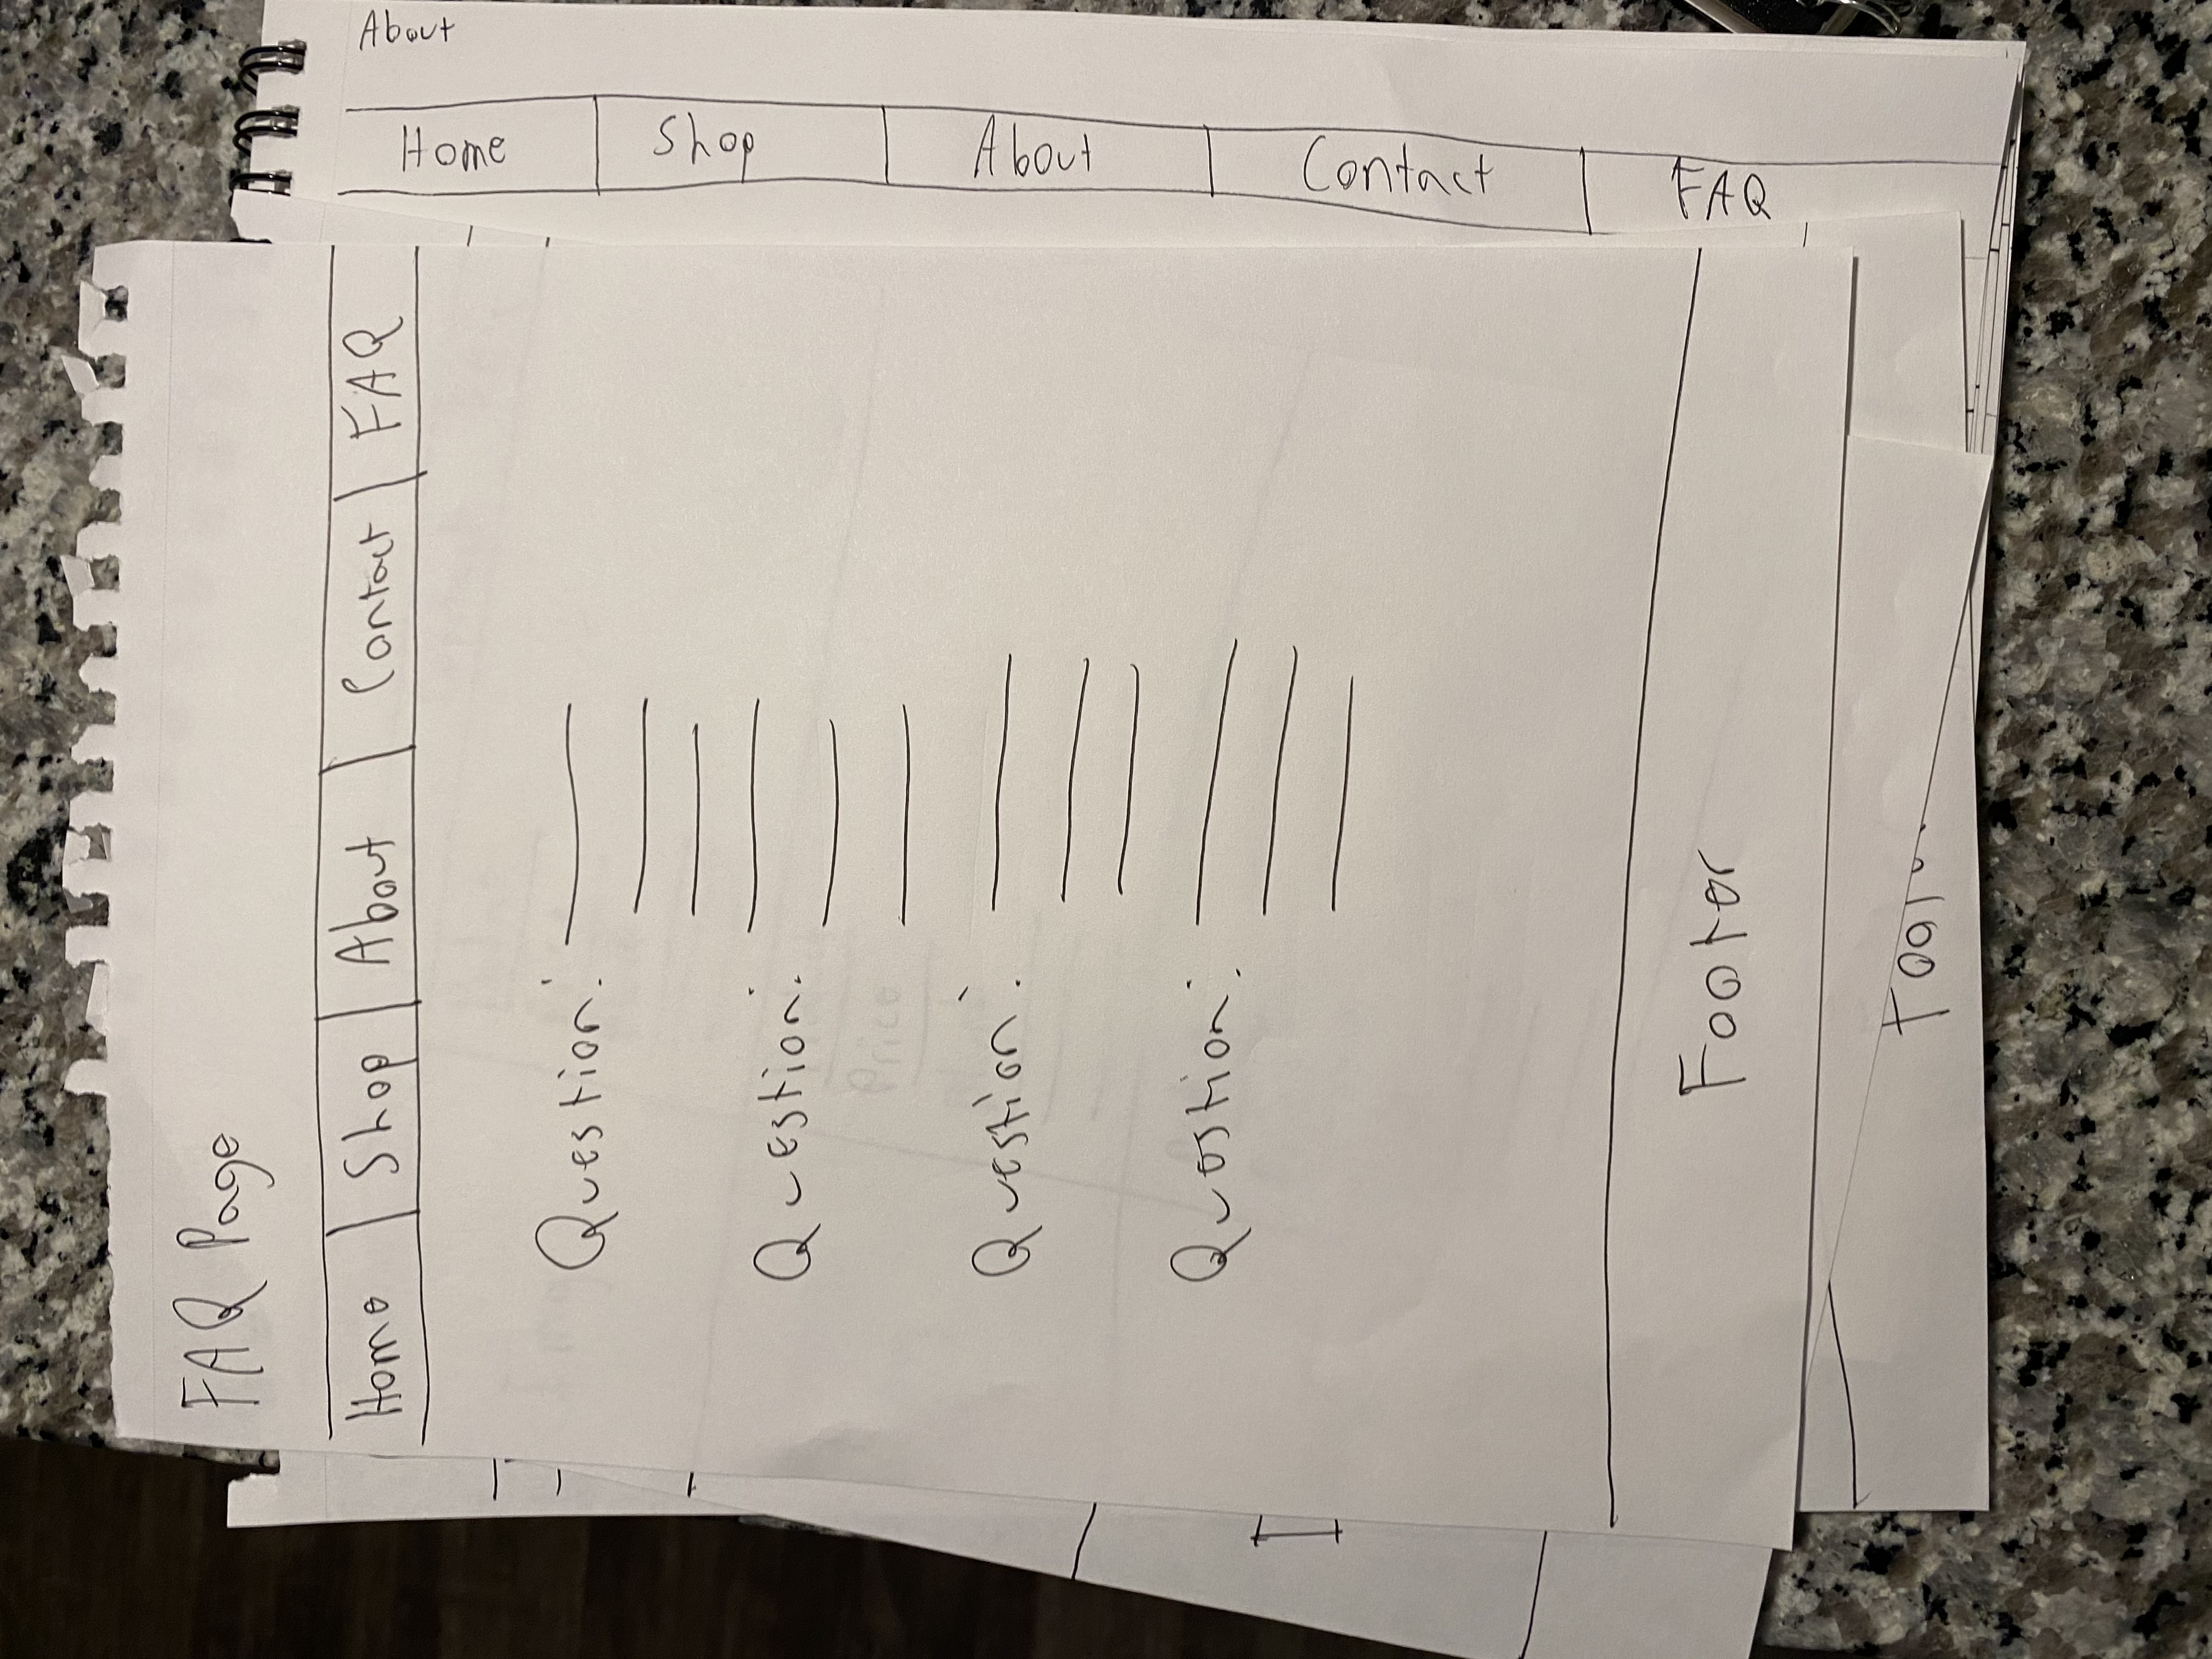 FAQ Page
Home Shop About Contact FAQ
Question:
Question:
Price
Question:
Question:
Footer
About
Home Shop About Contact FAQ